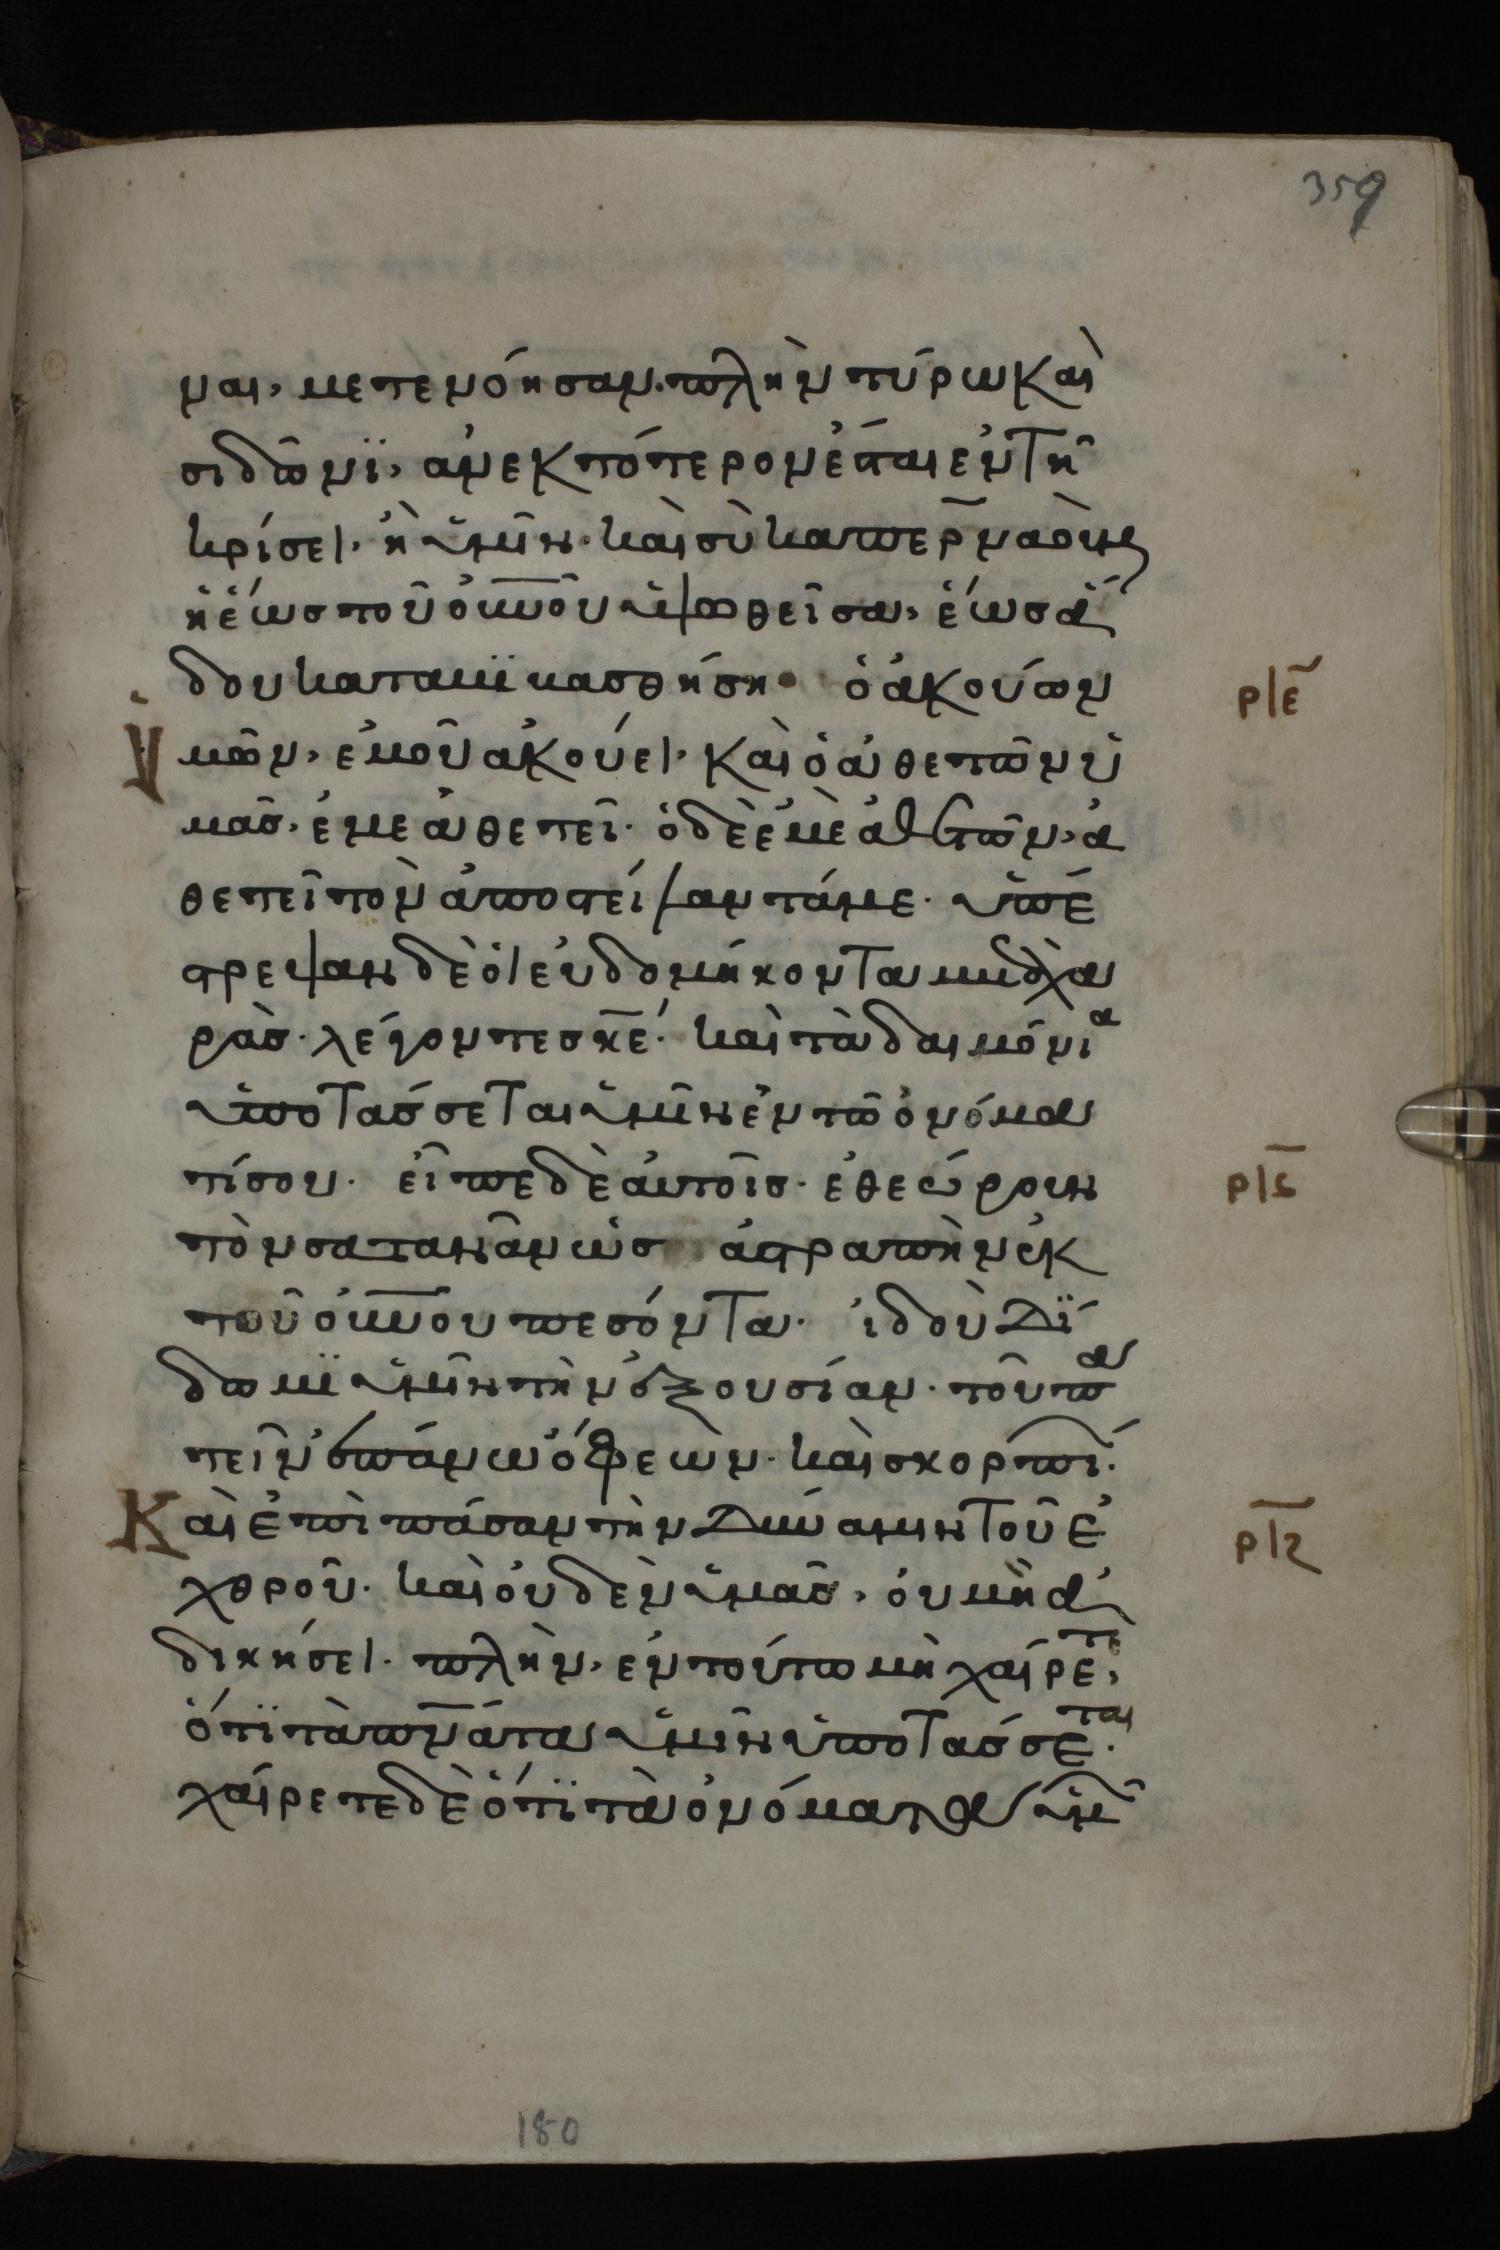 359
ναι, μετενόησαν. πλὴν τύρω καὶ
σιδῶνϊ, ἀνεκτότερον ἔσται ἐν τῆ
κρίσει, ἢ ὑμῖν. καὶ σὺ καπερναοὺμ
ἡ ἕως τοῦ οὐ̅νοῦ ὑψωθεῖσα, ἕως ἅ
δου καταβϊβασθήση. ὁ ἀκούων
ρ|ε̅
ὑμῶν, ἐμοῦ ἀκούει. καὶ ὁ ἀθετῶν ὑ
μᾶσ. ἐμὲ ἀθετεῖ. ὁ δὲ ἐμὲ ἀθετῶν, ἀ
θετεῖ τὸν ἀποστείλαντά με. ὑπέ
στρεψαν δὲ οἱ ευδομήκοντα μετὰ χα
ρᾶσ. λέγοντεσ κ̅ε. καὶ τὰ δαιμόνια
ὑποτάσσεται ὑμῖν ἐν τῶ ὀνόμα
τί σου. εἶπε δὲ ἀυτοῖσ. ἐθεώρουν
ρ|ϛ̅
τὸν σατανᾶν ὡσ ἀστραπὴν ἐκ
τοῦ οὐ̅νου πεσόντα. ἰδοὺ δί
δωμϊ ὑμῖν τὴν ἐξουσίαν. τοῦ πα
τεῖν ἐπάνω ὄφεων. καὶ σκορπί.
Καὶ ἐπὶ πᾶσαν τὴν δύναμιν τοῦ ἐ
ρ|ζ̅
χθροῦ. καὶ οὐδὲν ὑμᾶσ, οὐ μὴ ἀ
δικήσει. πλὴν, ἐν τούτω μὴ χαίρετε,
ὅτϊ τὰ πν̅ατα ὑμῖν ὑποτάσσεται.
χαίρετε δὲ ὅτϊ τὰ ὀνόματα ὑμῶ
180